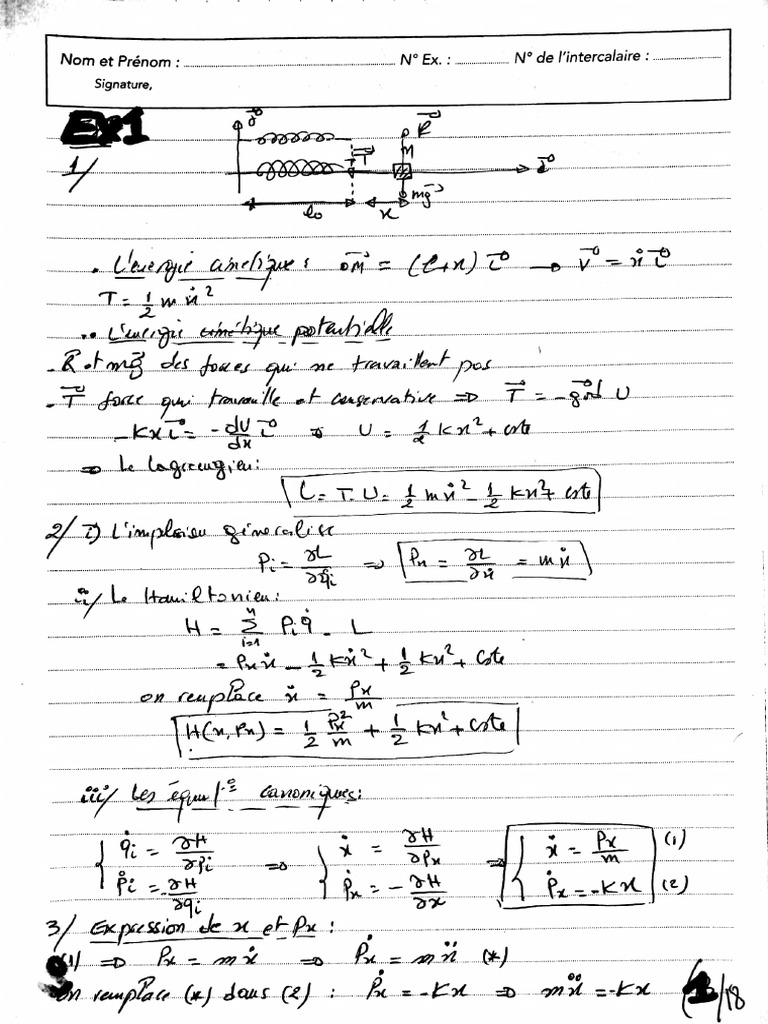 Nom et Prénom : ........ N° Ex. : ........ N° de l'intercalaire : ........
Signature,
Ex1
1/
R
M
T
i
mg
l₀ x
. L'énergie cinétique : OM = (l+x) i → V = ẋ i
T = 1/2 m ẋ²
.. L'énergie potentielle
- R et mg des forces qui ne travaillent pas
- T force qui travaille et conservative ⇒ T = -grad U
-Kx i = -dU/dx i ⇒ U = 1/2 Kx² + cste
⇒ Le lagrangien :
L = T - U = 1/2 mẋ² - 1/2 Kx² + cste
2/ i) L'implsion généralisé
Pi = ∂L/∂q̇i ⇒ Px = ∂L/∂ẋ = mẋ
ii/ Le Hamiltonien :
H = Σ(i=1, n) Pi q̇ - L
= Px ẋ - 1/2 Kẋ² + 1/2 Kx² + cste
on remplace ẋ = Px/m
H(x, Px) = 1/2 Px²/m + 1/2 Kx² + cste
iii/ Les équat° canoniques :
{ q̇i = ∂H/∂Pi ⇒ { ẋ = ∂H/∂Px ⇒ { ẋ = Px/m (1)
Ṗi = -∂H/∂qi Ṗx = -∂H/∂x Ṗx = -Kx (2)
3/ Expression de x et Px :
(1) ⇒ Px = mẋ ⇒ Ṗx = mẍ (*)
on remplace (*) dans (2) : Ṗx = -Kx ⇒ mẍ = -Kx
1/18